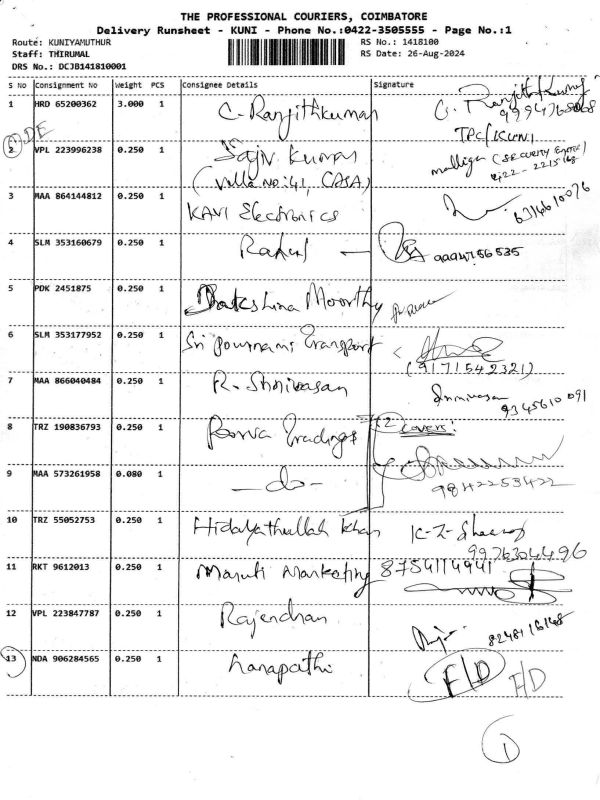 THE PROFESSIONAL COURIERS, COIMBATORE
Delivery Runsheet - KUNI - Phone No.:0422-3505555 - Page No.:1
Route: KUNIYAMUTHUR
RS No.: 1418100
Staff: THIRUMAL
RS Date: 26-Aug-2024
DRS No.: DCJB141810001
S No Consignment No Weight PCS Consignee Details Signature
1 HRD 65200362 3.000 1 C. Ranjithkumar
TPC/KUNI
2 VPL 223996238 0.250 1 Sajiv Kumar
(Villa No: 41, CASA)
(SECURITY
3 MAA 864144812 0.250 1 KAVI Electronics
4 SLM 353160679 0.250 1 Rahul
5 PDK 2451875 0.250 1 Dakshina Moorthy
6 SLM 353177952 0.250 1 Sri Pournami Transport
(9171542321)
7 MAA 866040484 0.250 1 R. Shrinivasan Srinivasan
9345610091
8 TRZ 190836793 0.250 1 Poorva Tradings 2 Covers:
9 MAA 573261958 0.080 1 -do-
9842253422
10 TRZ 55052753 0.250 1 Hidayathullah Khan
9976304496
11 RKT 9612013 0.250 1 Maruti Marketing 8754114941
12 VPL 223847787 0.250 1 Rajendran
8248116148
13 NDA 906284565 0.250 1 Ganapathi F/D F/D
1